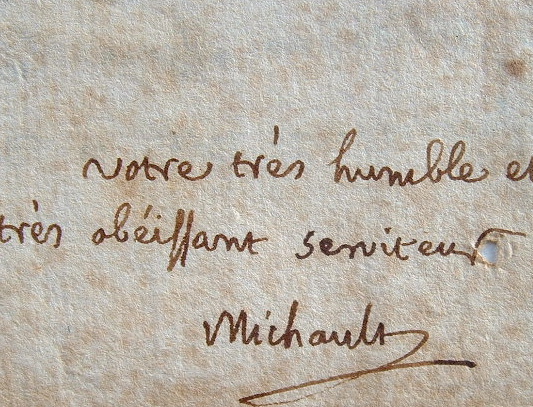 votre très humble et
très obéissant serviteur
Michault